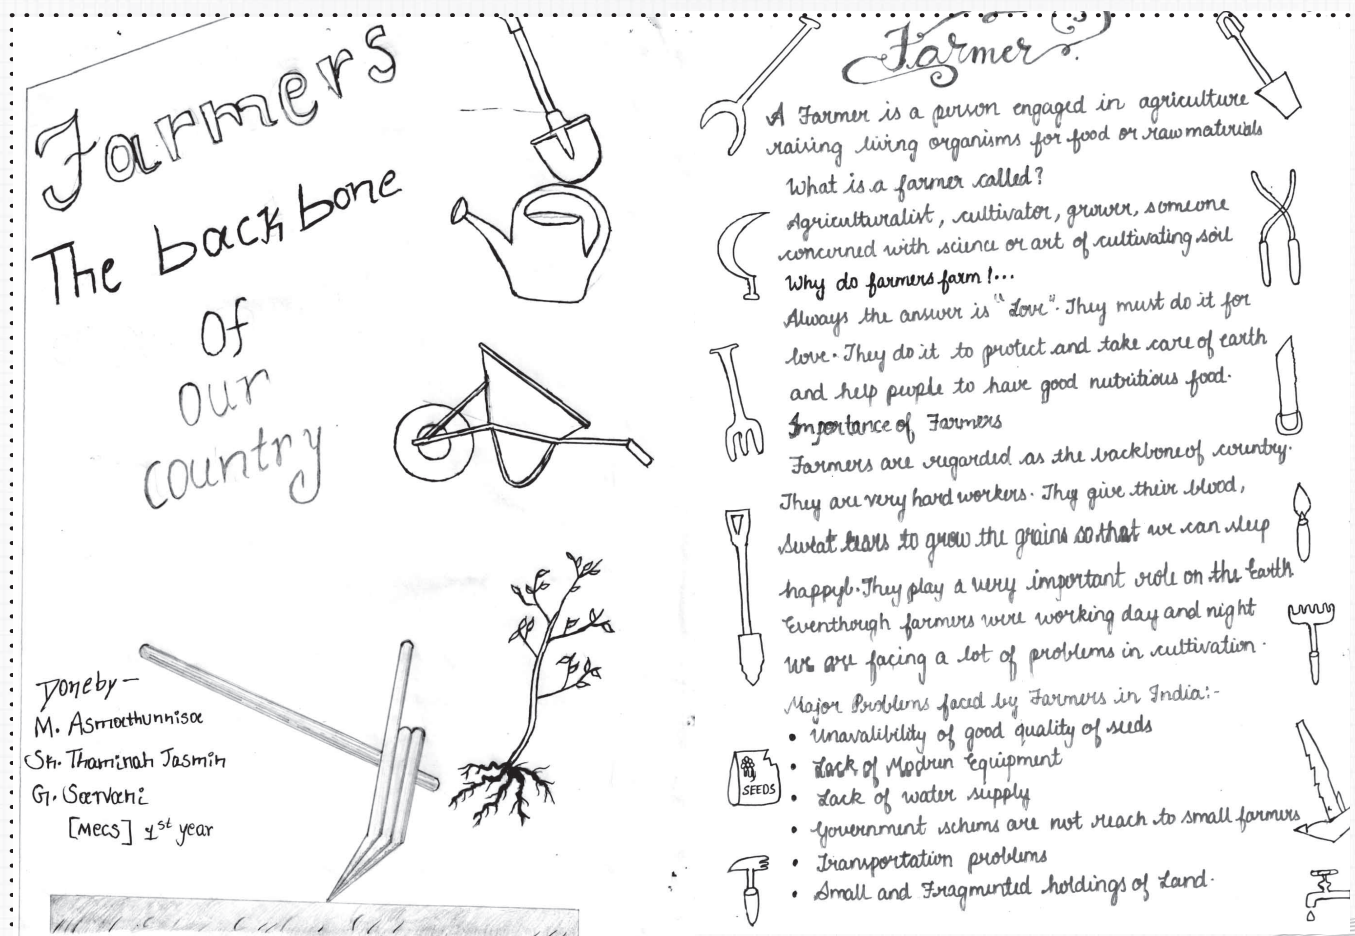 Farmers
The backbone
Of
our
country
Doneby-
M. Asmathunnisa
Sk. Thaminah Jasmin
G. Sarvani
[MECS] 1st year
Farmer.
A Farmer is a person engaged in agriculture
raising living organisms for food or raw materials
What is a farmer called?
Agriculturalist, cultivator, grower, someone
concerned with science or art of cultivating soil
Why do farmers farm!...
Always the answer is "Love". They must do it for
love. They do it to protect and take care of earth
and help people to have good nutritious food.
Importance of Farmers
Farmers are regarded as the backbone of country.
They are very hard workers. They give their blood,
sweat tears to grow the grains so that we can sleep
happyly. They play a very important role on the Earth
Eventhough farmers were working day and night
we are facing a lot of problems in cultivation.
Major Problems faced by Farmers in India:-
• Unavalibility of good quality of seeds
• Lack of Modren Equipment
• Lack of water supply
• Government schems are not reach to small farmers
• Transportation problems
• Small and Fragmented holdings of Land.
SEEDS